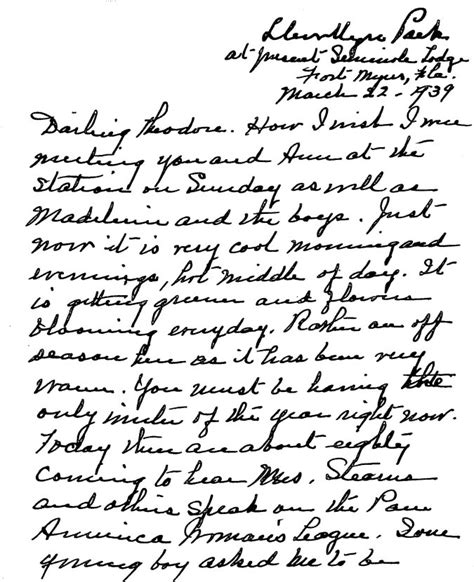 Llewellyn Park
at present Seminole Lodge
Fort Myers, Fla.
March 22 - 1939
Darling Theodore. How I wish I were
meeting you and Ann at the
station on Sunday as well as
Madeleine and the boys. Just
now it is very cool morning and
evenings, hot middle of day. It
is getting greener and flowers
blooming everyday. Rather an off
season here as it has been very
warm. You must be having the
only winter of the year right now.
Today there are about eighty
coming to hear Mrs. Stearns
and others speak on the Pan
America Woman's League. Some
young boy asked me to be